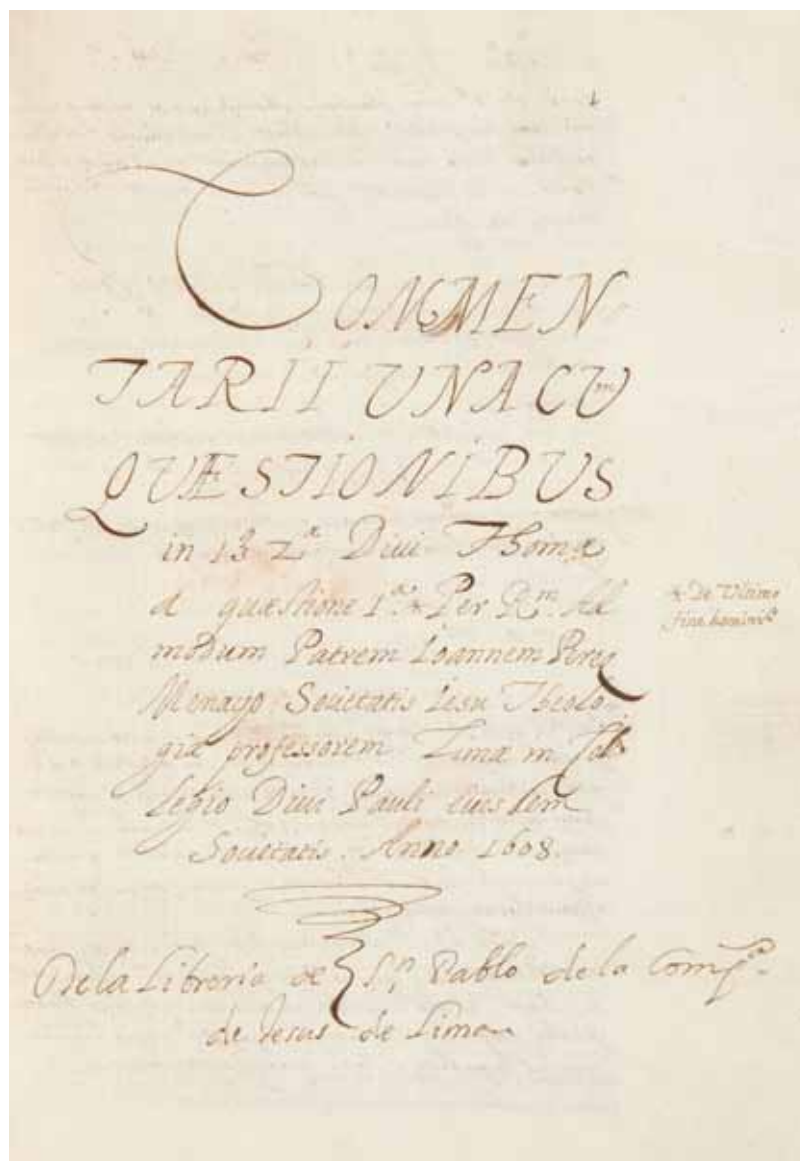 COMMEN
TARII UNA CUm
QUÆSTIONIBUS
in 1ª 2ª Divi Thomæ
a quæstione 1ª * Per Rm Ad
modum Patrem Ioannem Perez
Menago Societatis Iesu Theolo
giæ professorem Limæ in Col
legio Divi Pauli eiusdem
Societatis. Anno 1608.
* De Ultimo
fine hominis
De la Libreria de S.n Pablo de la Compª.
de Jesus de Lima